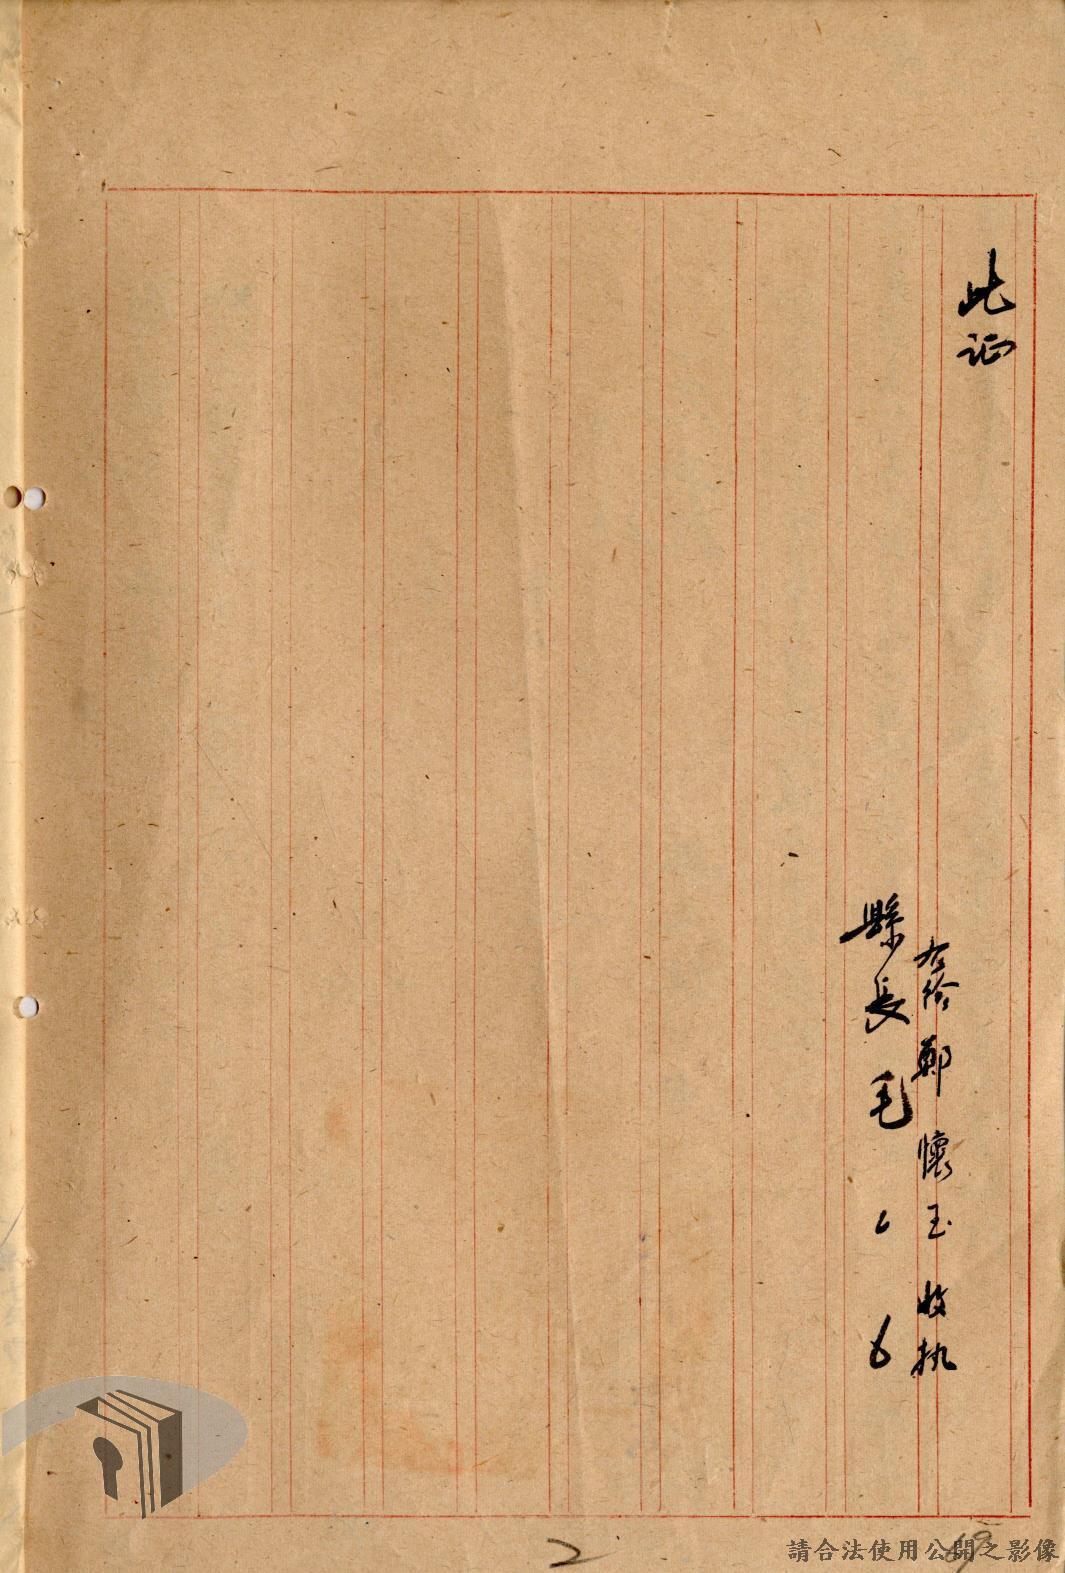 此証
右給鄭懷玉收执
縣長毛
2
請合法使用公開之影像